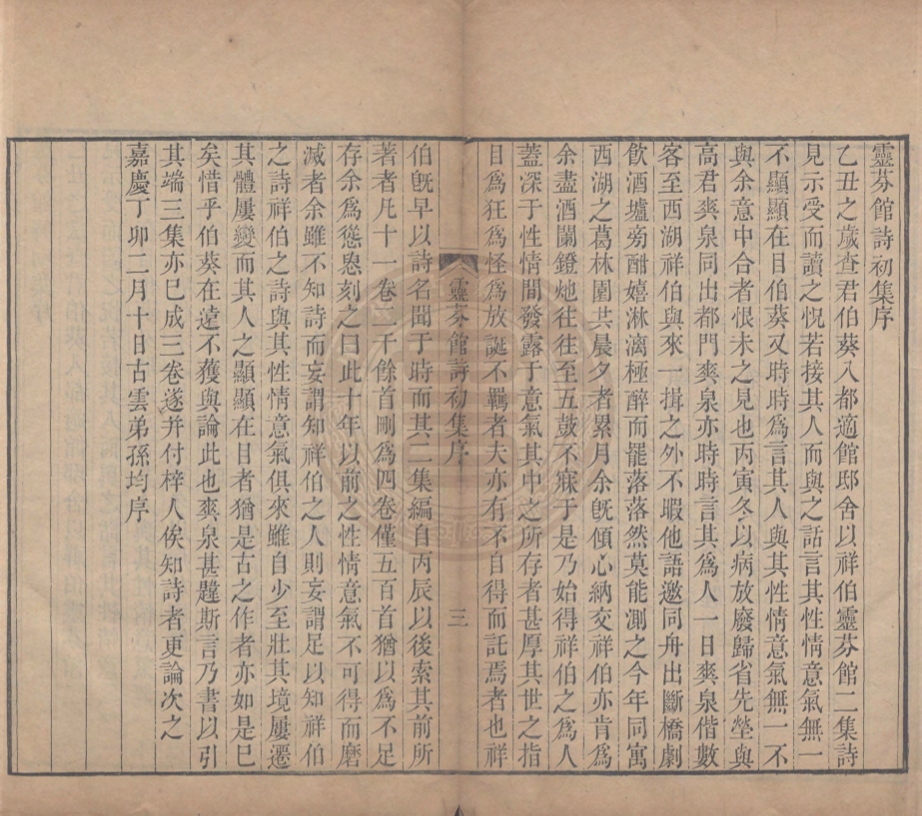 靈芬館詩初集序
乙丑之歲查君伯葵入都適館邸舍以祥伯靈芬館二集詩
見示受而讀之怳若接其人而與之話言其性情意氣無一
不顯顯在目伯葵又時時爲言其人與其性情意氣無一不
與余意中合者恨未之見也丙寅冬以病放廢歸省先塋與
高君爽泉同出都門爽泉亦時時言其爲人一日爽泉偕數
客至西湖祥伯與來一揖之外不暇他語邀同舟出斷橋劇
飲酒壚旁酣嬉淋漓極醉而罷落落然莫能測之今年同寓
西湖之葛林園共晨夕者累月余旣傾心納交祥伯亦肯爲
余盡酒闌鐙灺往往至五鼓不寐于是乃始得祥伯之爲人
蓋深于性情間發露于意氣其中之所存者甚厚其世之指
目爲狂爲怪爲放誕不羈者夫亦有不自得而託焉者也祥
靈芬館詩初集序
三
伯旣早以詩名聞于時而其二集編自丙辰以後索其前所
著者凡十一卷二千餘首刪爲四卷僅五百首猶以爲不足
存余爲慫恿刻之曰此十年以前之性情意氣不可得而磨
滅者余雖不知詩而妄謂知祥伯之人則妄謂足以知祥伯
之詩祥伯之詩與其性情意氣俱來雖自少至壯其境屢遷
其體屢變而其人之顯顯在目者猶是古之作者亦如是已
矣惜乎伯葵在遠不獲與論此也爽泉甚韙斯言乃書以引
其端三集亦已成三卷遂并付梓人俟知詩者更論次之
嘉慶丁卯二月十日古雲弟孫均序